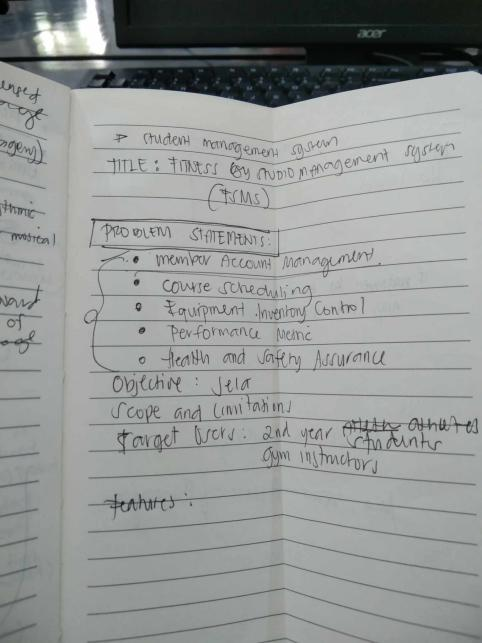 acer
student management system
TITLE: FITNESS STUDIO MANAGEMENT SYSTEM
(FSMS)
PROBLEM STATEMENTS:
• member Account Management.
• course scheduling
• Equipment Inventory Control
• Performance Metric
• Health and Safety Assurance
Objective: Jela
Scope and Limitations
Target Users: 2nd year students
gym instructors
features:
musical
of